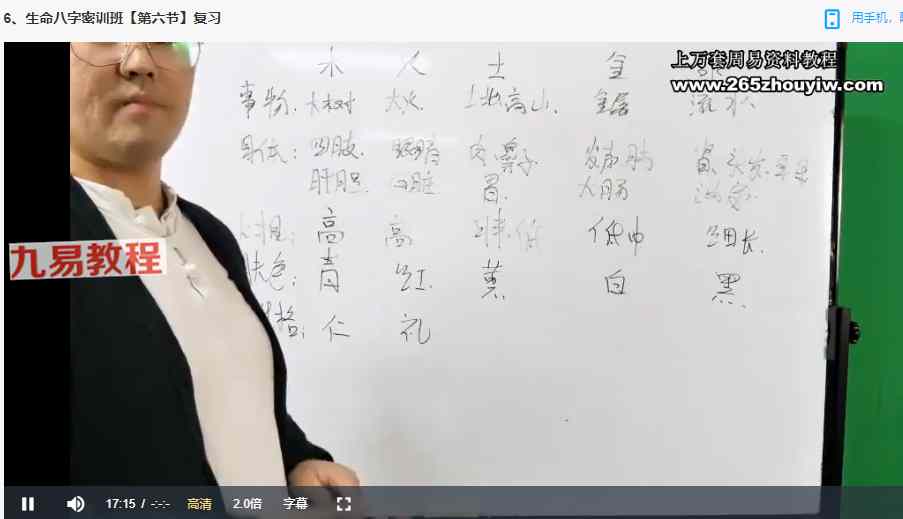 6、生命八字密训班【第六节】复习
用手机，
上万套周易资料教程
www.265zhouyiw.com
木 火 土 金
事物: 木树 大火 土地高山. 金器 流水
身体: 四肢. 眼睛 肉鼻子 发声肺 肾头发
肝胆 心脏 胃 大肠
高 高 低 低中 细长.
肤色: 青 红. 黄. 白 黑.
性格: 仁 礼
九易教程
17:15 / -:-:- 高清 2.0倍 字幕